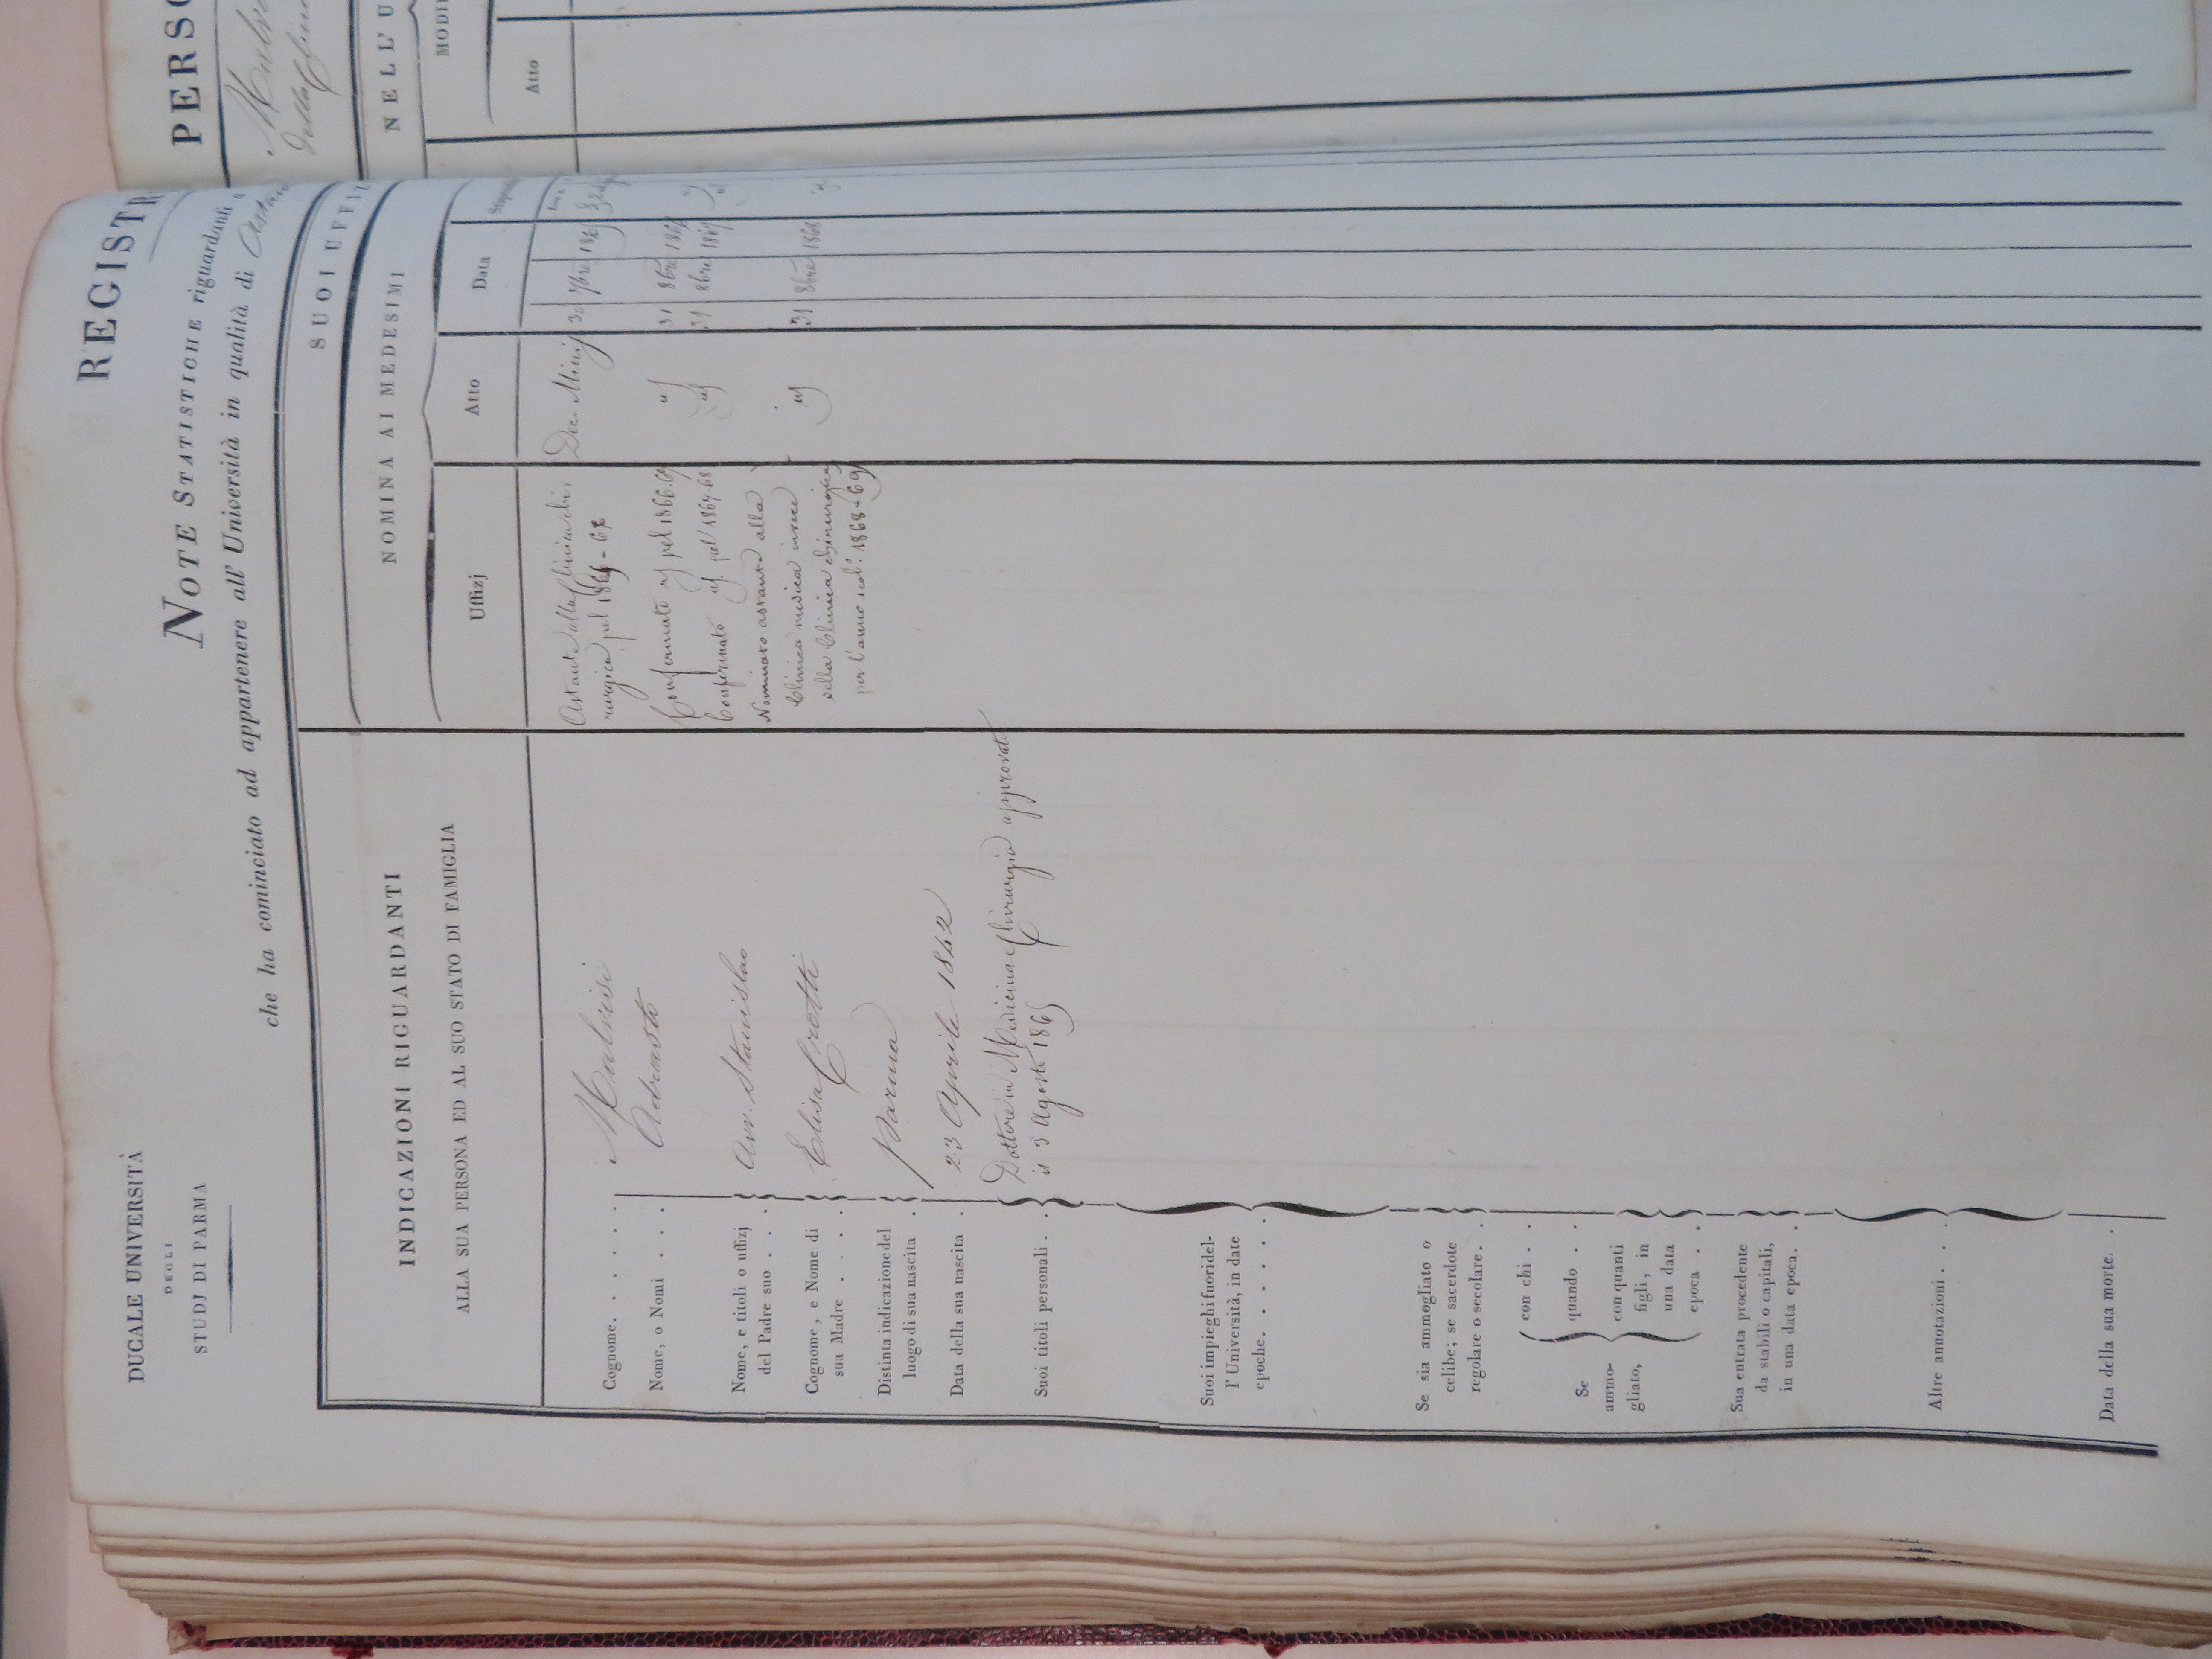 DUCALE UNIVERSITÀ
DEGLI
STUDJ DI PARMA
REGISTR
NOTE STATISTICHE riguardanti
che ha cominciato ad appartenere all' Università in qualità di Astan
INDICAZIONI RIGUARDANTI
ALLA SUA PERSONA ED AL SUO STATO DI FAMIGLIA
Cognome. . . . . . Malvisi
Nome, o Nomi . . . Adrasto
Nome, e titoli o uffizj
del Padre suo . . . Avv. Stanislao
Cognome, e Nome di
sua Madre . . . . Elisa Crotti
Distinta indicazione del
luogo di sua nascita . Parma
Data della sua nascita . 23 Aprile 1842
Suoi titoli personali . . Dottore in Medicina e Chirurgia approvato
il 3 Agosto 1865
Suoi impieghi fuori del-
l' Università, in date
epoche. . . . . .
Se sia ammogliato o
celibe; se sacerdote
regolare o secolare. .
Se
ammo-
gliato,
con chi . .
quando . .
con quanti
figli, in
una data
epoca . .
Sua entrata procedente
da stabili o capitali,
in una data epoca. .
Altre annotazioni . .
Data della sua morte. .
SUOI UFFIZ
NOMINA AI MEDESIMI
Uffizj
Atto
Data
Stipend
Astante alla Clinica chi-
rurgica pel Dec. Minis 30 7bre
Confermato id pel 1866.67 id 31 8bre
Confermato id. pel 1867.68 id 31 8bre 1867
Nominato astante alla
Clinica medica invece
della Clinica chirurgica id 31 8bre 1868
per l'anno scol. 1868-69
PERSO
Malvi
della Clini
NELL' U
MODI
Atto